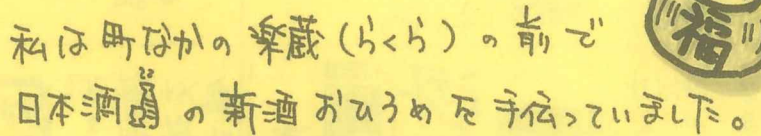 福
私は町なかの楽蔵(らくら)の前で
日本酒の新酒おひろめを手伝っていました。